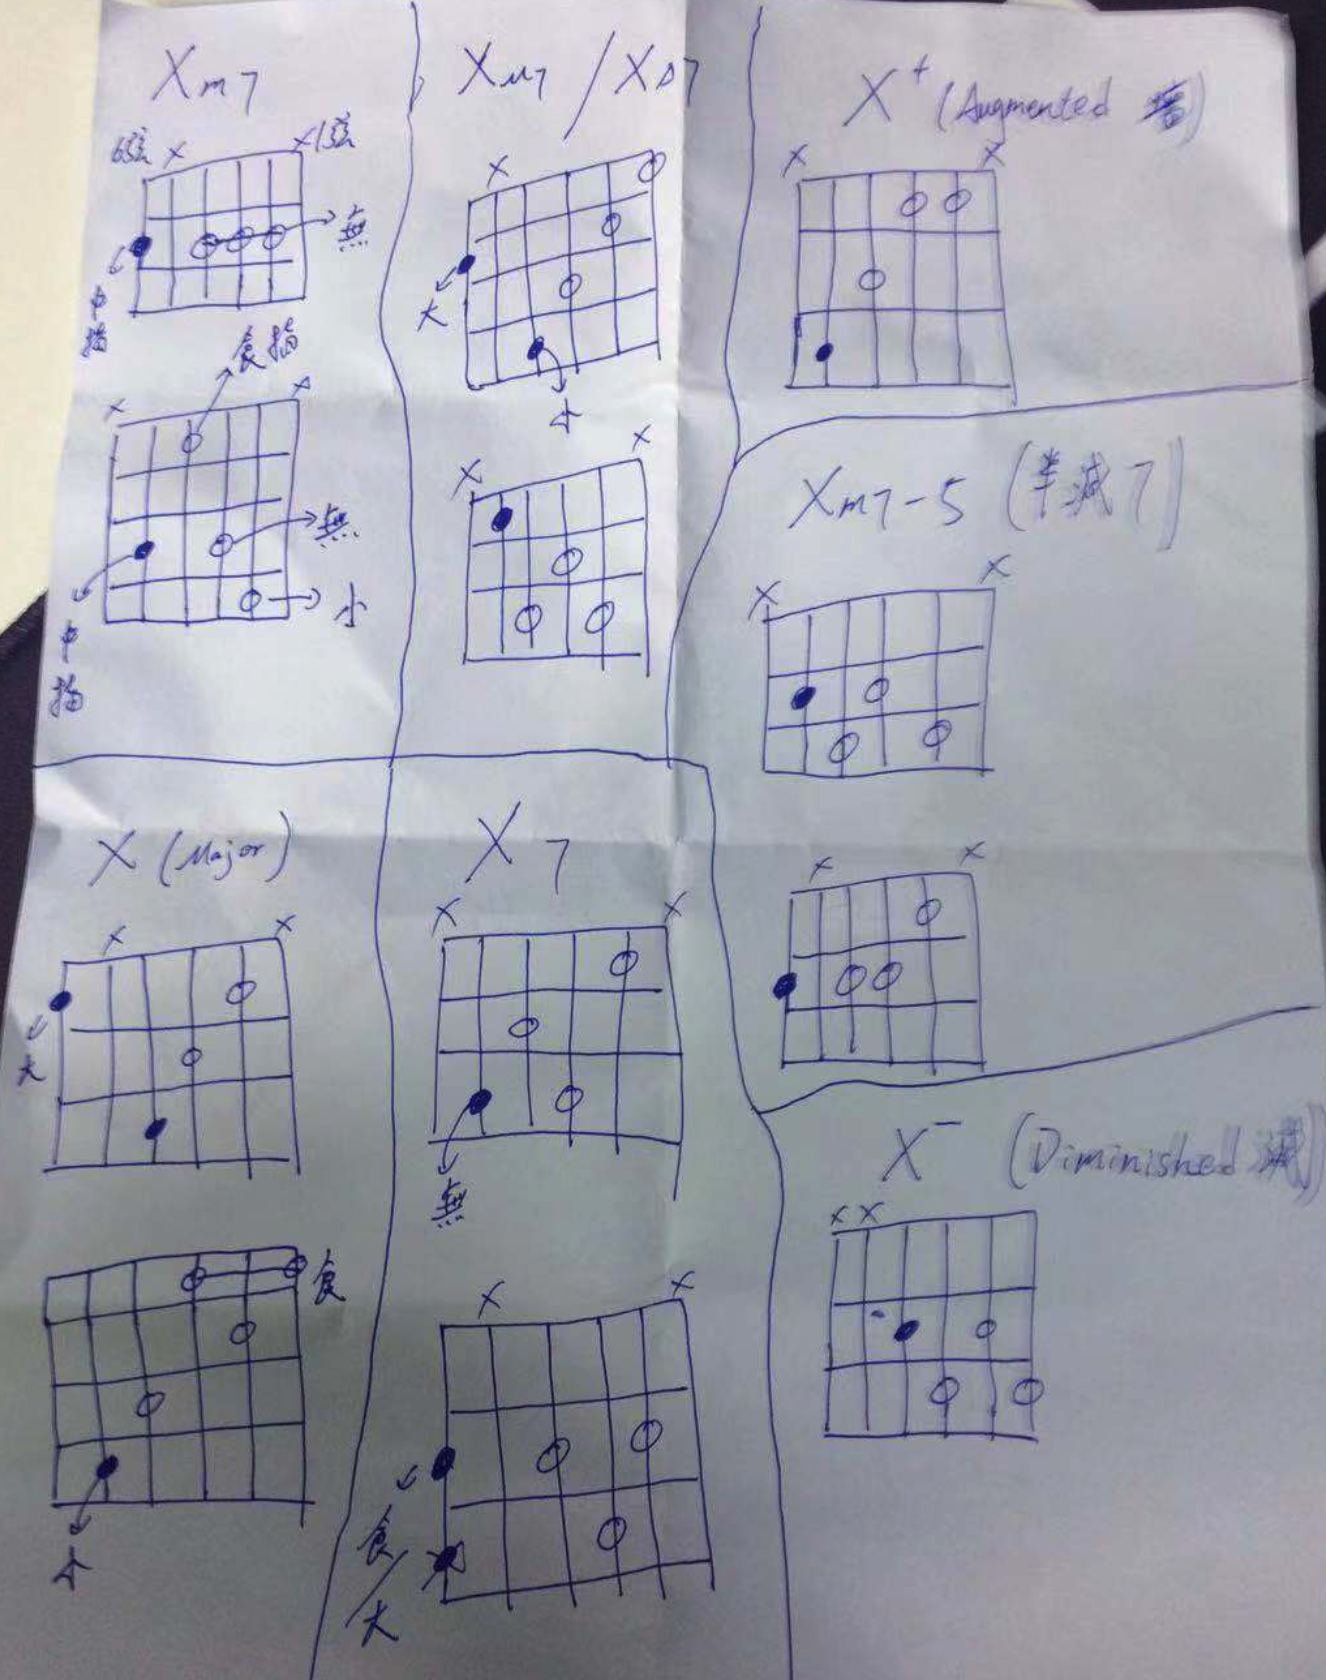 Xm7
6弦 x
x 1弦
無
中指
食指
x
x
無
小
中指
XM7 / XΔ7
x
大
小
x
x
X+ (Augmented 增)
x
x
Xm7-5 (半減7)
x
x
x
x
X (Major)
x
x
大
食
小
X7
x
x
無
x
x
食/大
X- (Diminished 減)
x x